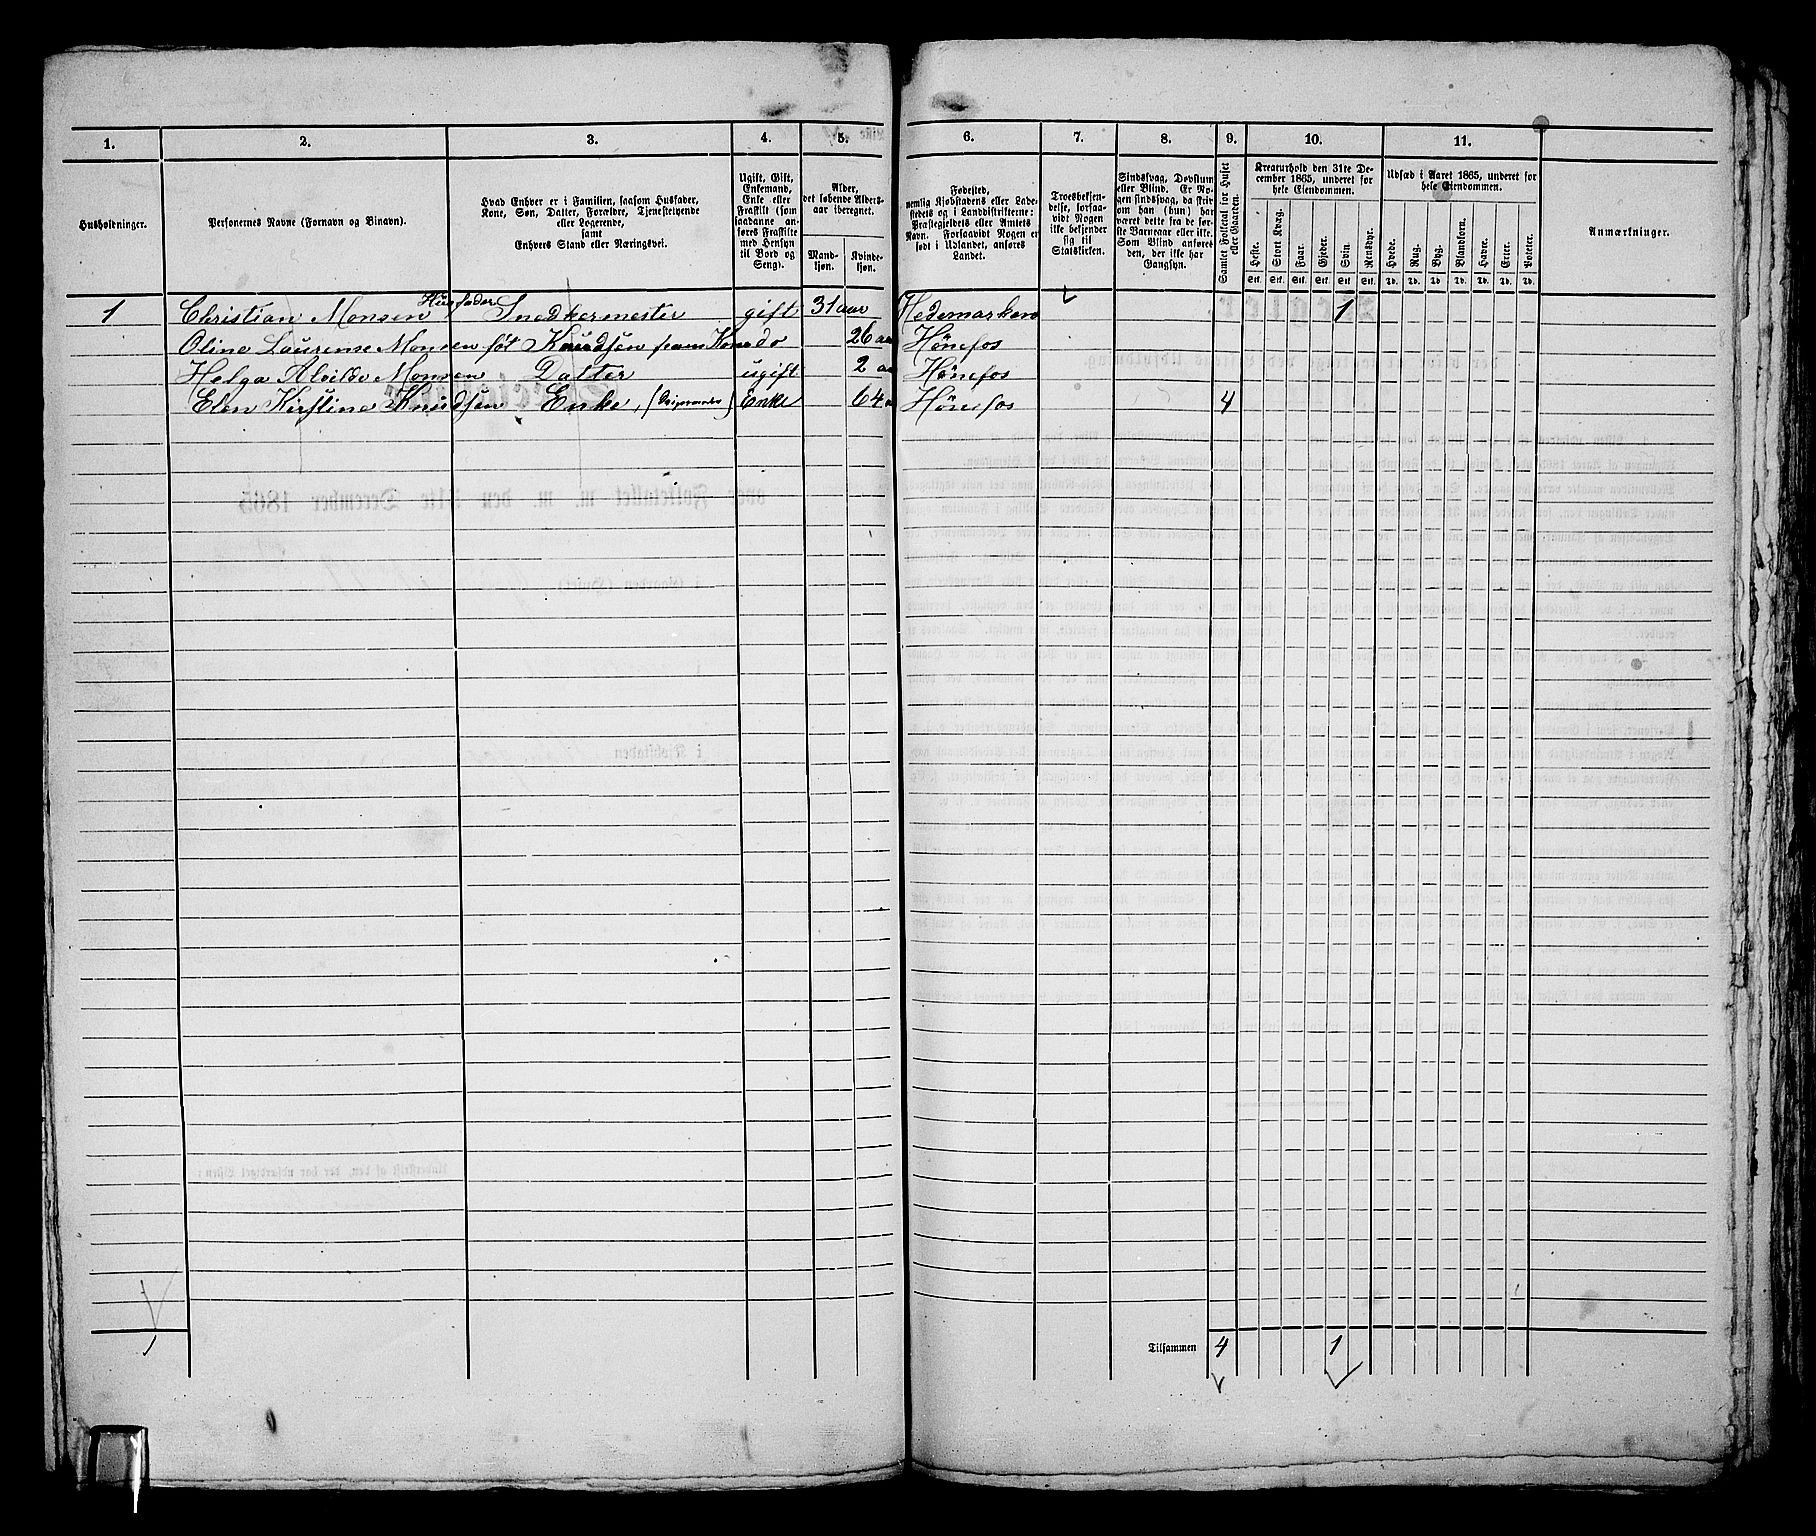 1. 2. 3. 4. 5. 6. 7. 8. 9. 10. 11.
Husholdninger.
Personernes Navne (Fornavn og Binavn).
Hvad Enhver er i Familien, saasom Husfader,
Kone, Søn, Datter, Forældre, Tjenestetyende
eller Logerende,
samt
Enhvers Stand eller Næringsvei.
Ugift, Gift,
Enkemand,
Enke eller
Fraskilt (som
saadanne an-
føres Fraskilte
med Hensyn
til Bord og
Seng).
Alder,
det løbende Alders-
aar iberegnet.
Mand-
kjøn.
Kvinde-
kjøn.
Fødested,
nemlig Kjøbstadens eller Lade-
stedets og i Landdistrikterne:
Præstegjeldets eller Amtets
Navn. Forsaavidt Nogen er
født i Udlandet, anføres
Landet.
Troesbekjen-
delse, forsaa-
vidt Nogen
ikke bekjender
sig til
Statskirken.
Sindssvag, Døvstum
eller Blind. Er No-
gen sindssvag, da skriv
om han (hun) har
været dette fra de før-
ste Barneaar eller ikke.
Som Blind anføres
den, der ikke har
Gangsyn.
Samlet Folketal for Huset
eller Gaarden.
Kreaturhold den 31te De-
cember 1865, underet for
hele Eiendommen.
Heste. Stort Kvæg. Faar. Gjeder. Svin. Rensdyr.
Stk. Stk. Stk. Stk. Stk. Stk.
Udsæd i Aaret 1865, underet for
hele Eiendommen.
Hvede. Rug. Byg. Blandkorn. Havre. Erter. Poteter.
Td. Td. Td. Td. Td. Td. Td.
Anmærkninger.
1 Christian Monsen Husfader Snedkermester gift 31 aar Hedemarken 1
Oline Laurense Monsen föt Knudsen hans Kone do 26 aar Hönefos
Helga Alvilde Monsen Datter ugift 2 aar Hönefos
Elen Kirstine Knudsen Enke, Enke 64 Hönefos 4
1 Tilsammen 4 1